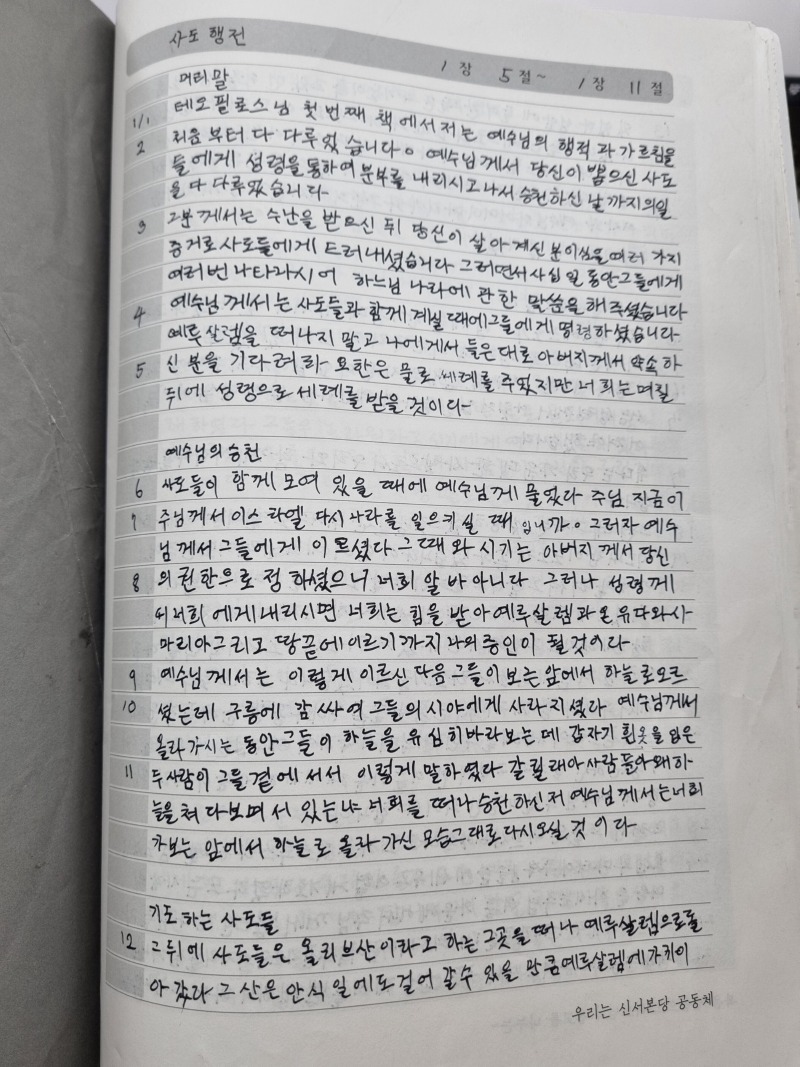 사도 행전
1 장 5 절~ 1 장 11 절
머리말
1/1 테오필로스님 첫 번째 책에서 저는 예수님의 행적과 가르침을
2 처음부터 다 다루었습니다。 예수님께서 당신이 뽑으신 사도
들에게 성령을 통하여 분부를 내리시고 나서 승천하신 날까지의 일
을 다 다루었습니다
3 그분께서는 수난을 받으신 뒤 당신이 살아 계신 분이심을 여러 가지
증거로 사도들에게 드러내셨습니다 그러면서 사십 일 동안 그들에게
여러번 나타나시어 하느님 나라에 관한 말씀을 해 주셨습니다
4 예수님께서는 사도들과 함께 계실 때에 그들에게 명령하셨습니다
예루살렘을 떠나지 말고 나에게서 들은 대로 아버지께서 약속하
5 신 분을 기다려라 요한은 물로 세례를 주었지만 너희는 며칠
뒤에 성령으로 세례를 받을 것이다
예수님의 승천
6 사도들이 함께 모여 있을 때에 예수님께 물었다 주님 지금이
7 주님께서 이스라엘 다시 나라를 일으키실 때 입니까。 그러자 예수
님께서 그들에게 이르셨다 그 때와 시기는 아버지께서 당신
8 의 권한으로 정하셨으니 너희 알 바 아니다 그러나 성령께
서 너희에게 내리시면 너희는 힘을 받아 예루살렘과 온 유다와 사
마리아 그리고 땅끝에 이르기까지 나의 증인이 될 것이다
9 예수님께서는 이렇게 이르신 다음 그들이 보는 앞에서 하늘로 오르
10 셨는데 구름에 감싸여 그들의 시야에게 사라지셨다 예수님께서
올라가시는 동안 그들이 하늘을 유심히 바라보는데 갑자기 흰옷을 입은
11 두 사람이 그들 곁에 서서 이렇게 말하였다 갈릴래아 사람들아 왜 하
늘을 쳐다보며 서 있는냐 너희를 떠나 승천하신 저 예수님께서는 너희
가 보는 앞에서 하늘로 올라가신 모습 그대로 다시 오실 것이다
기도 하는 사도들
12 그 뒤에 사도들은 올리브산이라고 하는 그곳을 떠나 예루살렘으로 돌
아 갔다 그 산은 안식일에도 걸어 갈수 있을 만큼 예루살렘에 가까이
우리는 신서본당 공동체